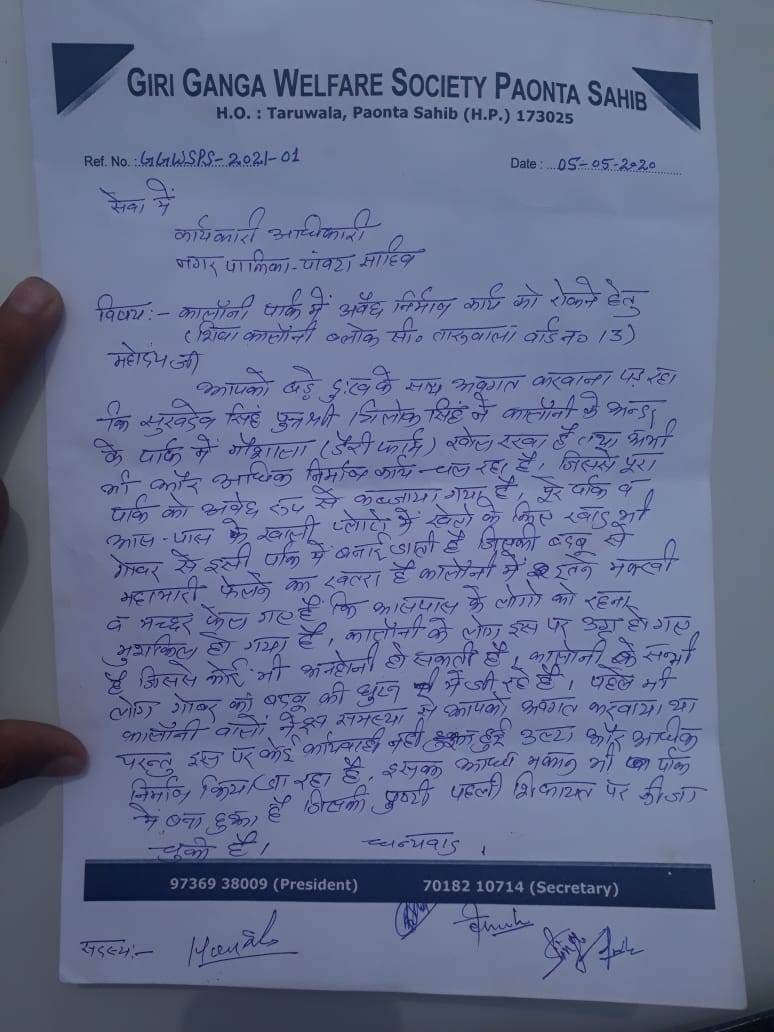 GIRI GANGA WELFARE SOCIETY PAONTA SAHIB
H.O. : Taruwala, Paonta Sahib (H.P.) 173025
Ref. No. : GGWSPS-2021-01 Date : 05-05-2020
सेवा में
कार्यकारी अधिकारी
नगर पालिका-पांवटा साहिब
विषय:- कालॉनी पार्क में अवैध निर्माण कार्य को रोकने हेतु
(शिवा कालॉनी ब्लोक सी० तारूवाला वार्ड न० 13)
महोदय जी
आपको बड़े दुःख के साथ अवगत करवाना पड़ रहा
कि सुखदेव सिंह पुत्र श्री त्रिलोक सिंह ने कालॉनी के अन्दर
के पार्क में गौशाला (डैरी फार्म) खोल रखा है तथा अभी
भी और अधिक निर्माण कार्य चल रहा है, जिससे पूरा
पार्क को अवैध रूप से कब्जाया गया है, पूरे पार्क व
आस-पास के खाली प्लोटो में खेतो के लिए खाद भी
गोबर से इसी पार्क में बनाई डाली है जिसकी बदबू से
महामारी फेलने का खतरा है कालॉनी में इतने मक्खी
व मच्छर फेल गए हैं कि आसपास के लोगो को रहना
मुशकिल हो गया है, कालॉनी के लोग इस पर उग्र हो गए
है जिससे कोई भी अनहोनी हो सकती है, कालोनी के सभी
लोग गोबर की बदबू की घुटन में जी रहे हैं। पहले भी
कालॉनी वालों ने इस समस्या से आपको अवगत करवाया था
परन्तु इस पर कोई कार्यवाही नही हुई उल्टा और अधिक
निर्माण किया जा रहा है, इसका आधा मकान भी पार्क
में बना हुआ है जिसकी पुष्टी पहली शिकायत पर की जा
चुकी है। धन्यवाद ,
97369 38009 (President) 70182 10714 (Secretary)
सदस्य:-